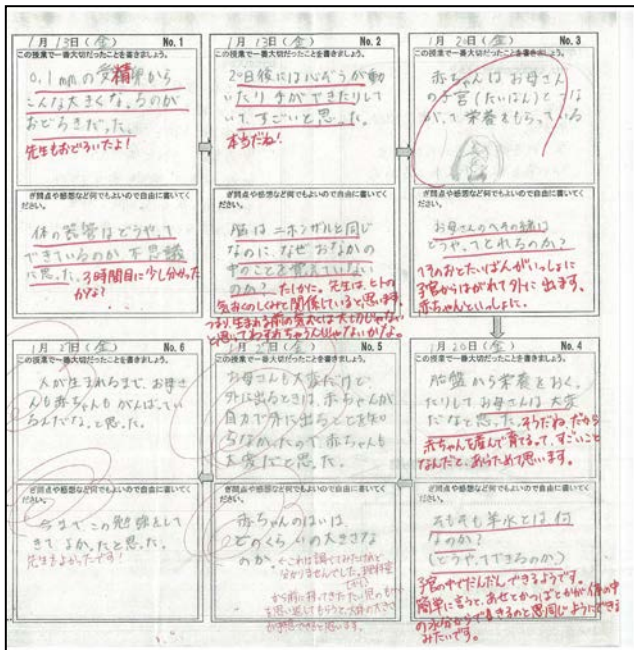 1月13日(金) No.1
この授業で一番大切だったことを書きましょう。
0.1mmの受精卵から
こんな大きくなるのが
おどろきだった。
先生もおどろいたよ!
ぎ問点や感想など何でもよいので自由に書いてく
ださい。
体の器官はどうやって
できているのか不思議
に思った。3時間目に少し分かった
かな?
1月13日(金) No.2
この授業で一番大切だったことを書きましょう。
20日後には心ぞうが動
いたり手ができたりして
いて、すごいと思った。
本当だね!
ぎ問点や感想など何でもよいので自由に書いてく
ださい。
脳はニホンザルと同じ
なのに、なぜおなかの
中のことを覚えていない
のか?たしかに。先生は、ヒトの
気おくのしくみと関係していると思います。
つまり、生まれる前の気おくは大切じゃない
と思いてわすれちゃうんじゃないかなぁ。
1月20日(金) No.3
この授業で一番大切だったことを書きましょう。
赤ちゃんはお母さん
の子宮(たいばん)とつな
がって栄養をもらっている
ぎ問点や感想など何でもよいので自由に書いてく
ださい。
お母さんのへその緒は
どうやってとれるのか?
へそのおとたいばんがいっしょに
子宮からはがれ外に出ます。
赤ちゃんといっしょに。
1月20日(金) No.4
この授業で一番大切だったことを書きましょう。
胎盤から栄養をおく
たりしてお母さんは大変
だなと思った。そうだね。だから
赤ちゃんを産んで育てるって、すごいこと
なんだと、あらためて思います。
ぎ問点や感想など何でもよいので自由に書いてく
ださい。
そもそも羊水とは何
なのか?
(どうやってできるのか?)
子宮の中でだんだんできるようです。
簡単に言うと、あせとかつばとかが体の中
の水分からできるのと同じようにできる
みたいです。
1月27日(金) No.5
この授業で一番大切だったことを書きましょう。
お母さんも大変だけど、
外に出るときは、赤ちゃんが
自力で外に出ることを知
らなかったので赤ちゃんも
大変だと思った。
ぎ問点や感想など何でもよいので自由に書いてく
ださい。
赤ちゃんのはいは、
どのくらいの大きさな
のか。
これは調べてみたけれど
分かりませんでした。
1月27日(金) No.6
この授業で一番大切だったことを書きましょう。
人が生まれるまで、お母さ
んも赤ちゃんもがんばってい
るんだな。と思った。
ぎ問点や感想など何でもよいので自由に書いてく
ださい。
今までこの勉強をして
きてよかったと思った。
先生もよかったです!